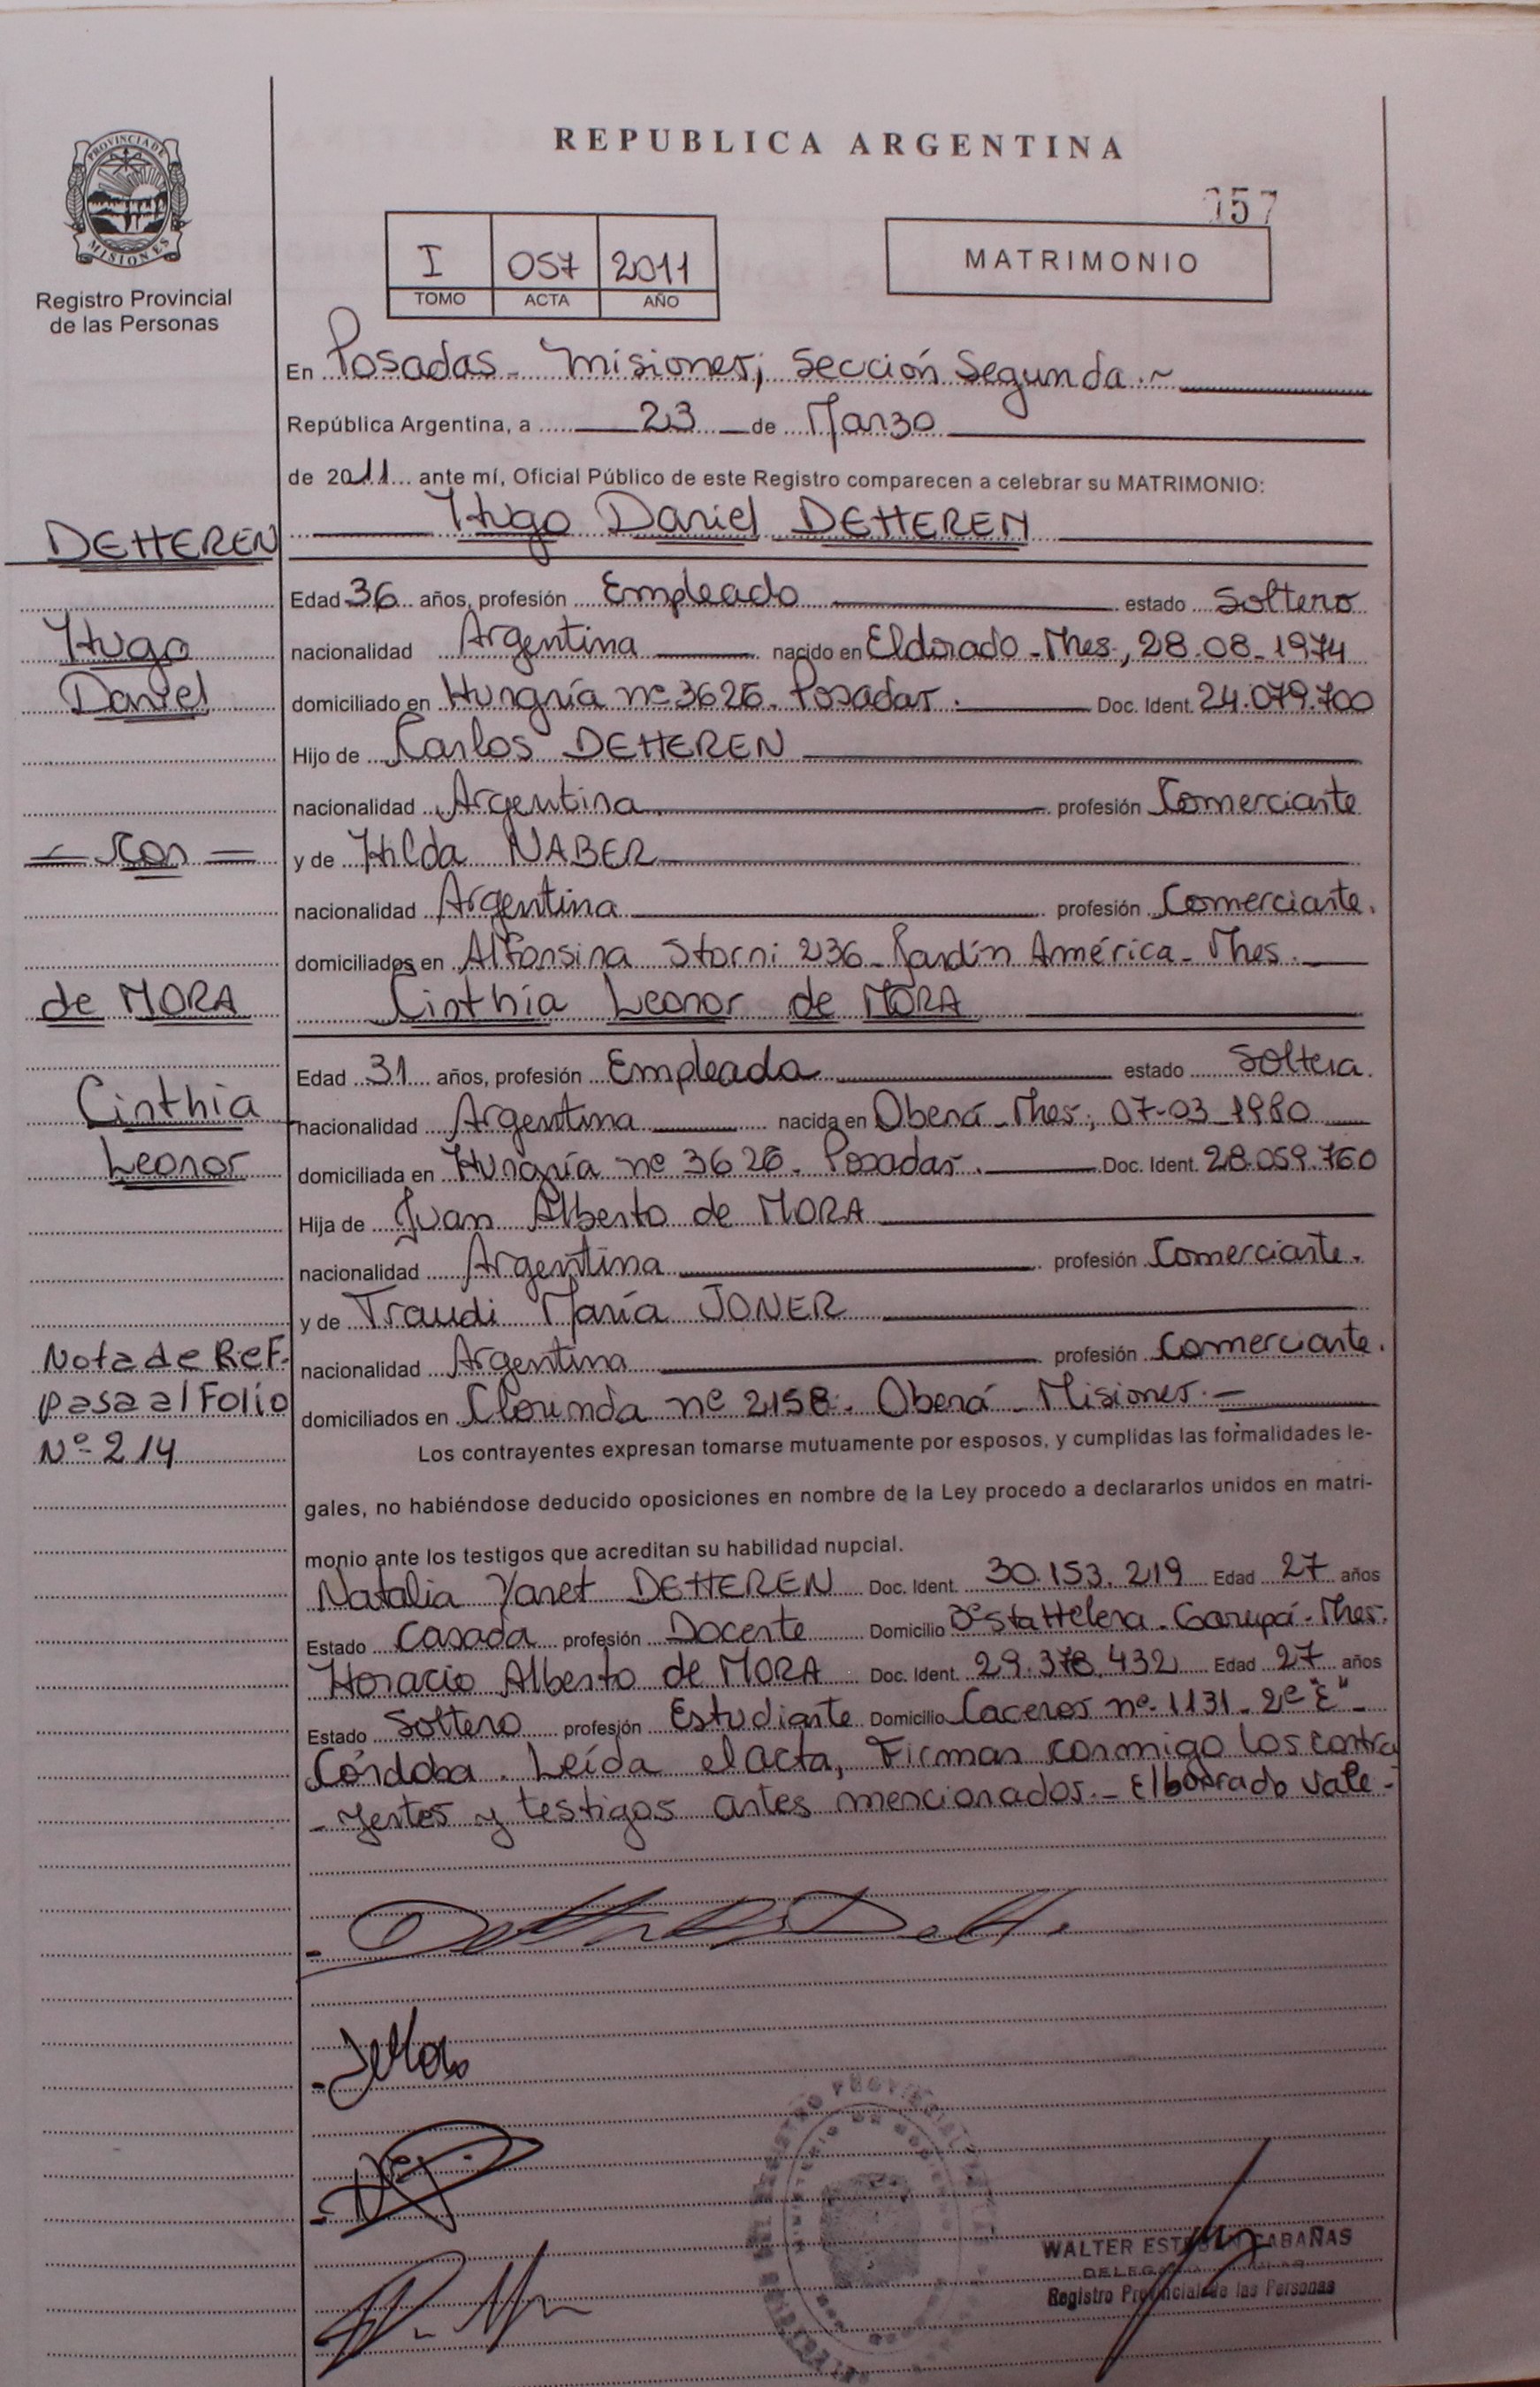 REPUBLICA ARGENTINA
PROVINCIA DE
MISIONES
Registro Provincial
de las Personas
057
I 057 2011
TOMO ACTA AÑO
MATRIMONIO
En Posadas - Misiones; Sección Segunda.-
República Argentina, a 23 de Marzo
de 2011 ante mí, Oficial Público de este Registro comparecen a celebrar su MATRIMONIO:
DETTEREN
Hugo Daniel DETTEREN
Edad 36 años, profesión Empleado estado Soltero
Hugo
nacionalidad Argentina nacido en Eldorado - Mnes, 28-08-1974
Daniel
domiciliado en Hungría nº 3626. Posadas. Doc. Ident. 24.079.700
Hijo de Carlos DETTEREN
nacionalidad Argentina profesión Comerciante
= Con =
y de Hilda NABER
nacionalidad Argentina profesión Comerciante.
domiciliados en Alfonsina Storni 236 - Jardín América - Mnes.
de MORA
Cinthia Leonor de MORA
Edad 31 años, profesión Empleada estado Soltera.
Cinthia
nacionalidad Argentina nacida en Oberá - Mnes; 07-03-1980
Leonor
domiciliada en Hungría nº 3626. Posadas. Doc. Ident. 28.059.760
Hija de Juan Alberto de MORA
nacionalidad Argentina profesión Comerciante.
y de Traudi María JONER
Nota de Ref.
nacionalidad Argentina profesión Comerciante.
pasa al Folio
domiciliados en Clorinda nº 2158. Oberá - Misiones.-
Nº 214
Los contrayentes expresan tomarse mutuamente por esposos, y cumplidas las formalidades le-
gales, no habiéndose deducido oposiciones en nombre de la Ley procedo a declararlos unidos en matri-
monio ante los testigos que acreditan su habilidad nupcial.
Natalia Yanet DETTEREN Doc. Ident. 30.153.219 Edad 27 años
Estado Casada profesión Docente Domicilio Bº Sta Helena - Garupá - Mnes.
Horacio Alberto de MORA Doc. Ident. 29.378.432 Edad 27 años
Estado Soltero profesión Estudiante Domicilio Caceros nº 1131 - 2º "E" -
Córdoba. Leída el acta, Firman conmigo los contra
- yentes y testigos antes mencionados.- El borrado vale -
WALTER ESTEBAN CABAÑAS
Registro Provincial de las Personas